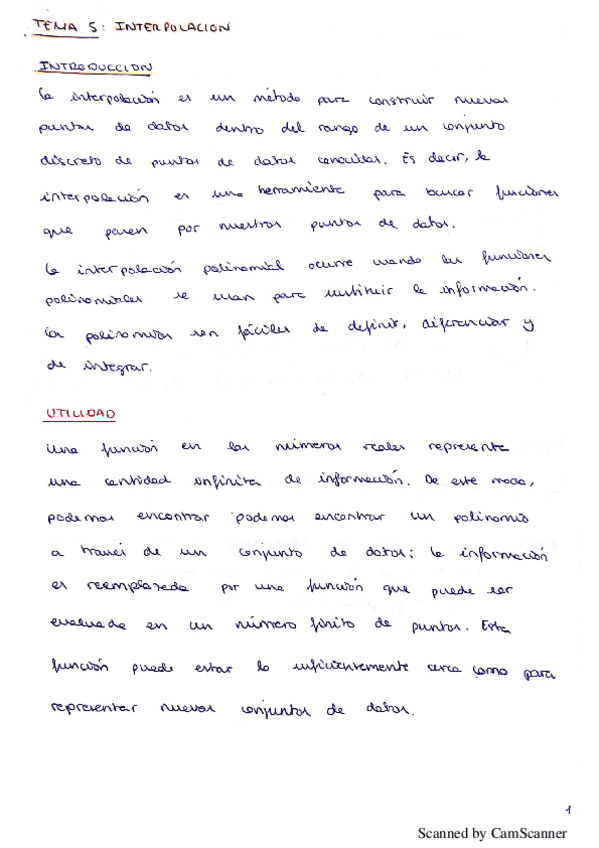 TEMA 5: INTERPOLACION
INTRODUCCION
La interpolación es un método para construir nuevos
puntos de datos dentro del rango de un conjunto
discreto de puntos de datos conocidos. Es decir, la
interpolación es una herramienta para buscar funciones
que pasen por nuestros puntos de datos.
La interpolación polinomial ocurre cuando las funciones
polinomiales se usan para sustituir la información.
Los polinomios son fáciles de definir, diferenciar y
de integrar.
UTILIDAD
Una función en los números reales representa
una cantidad infinita de información. De este modo,
podemos encontrar podemos encontrar un polinomio
a través de un conjunto de datos: la información
es reemplazada por una función que puede ser
evaluada en un número finito de puntos. Esta
función puede estar lo suficientemente cerca como para
representar nuevos conjuntos de datos.
1
Scanned by CamScanner